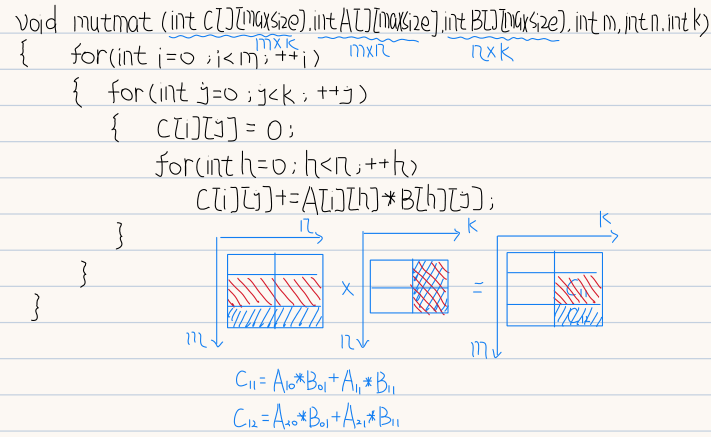 void mutmat (int C[][maxsize], int A[][maxsize], int B[][maxsize], int m, int n, int k)
m×k m×n n×k
{ for(int i=0 ; i<m ; ++i)
{ for(int j=0 ; j<k ; ++j)
{ C[i][j] = 0 ;
for(int h=0 ; h<n ; ++h)
C[i][j]+=A[i][h]*B[h][j] ;
}
}
}
n k k
× =
C11
C12
m n m
C11 = A10*B01+A11*B11
C12 = A20*B01+A21*B11